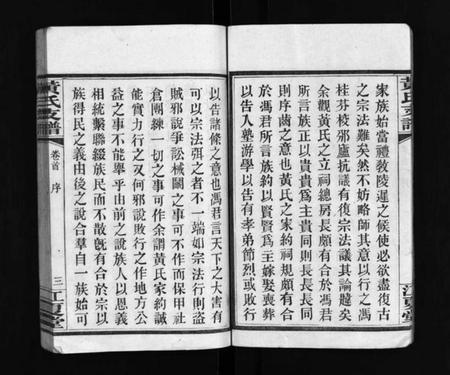 黃氏支譜
江夏堂
家族始當禮敎陵遲之候使必欲盡復古
之宗法難矣然不妨略師其意以行之馮
桂芬校邠廬抗議有復宗法議其論韙矣
余觀黃氏之立祠總房長頗有合於馮君
所言族正以貴貴爲主貴同則長長長同
則序齒之意也黃氏之家約祠規頗有合
於馮君所言族約以賢賢爲主嫁娶喪葬
以告入塾游學以告有孝弟節烈或敗行
以告諸條之意也馮君言天下之大害有
可以宗法弭之者不一端如宗法行則盜
賊邪說爭訟械鬭之事可不作而保甲社
倉團練一切之事可作余謂黃氏家約誠
能實力行之又何邪說敗行之作地方公
益之事不能舉乎由前之說族人以恩義
相統繫聯綴族民而不散旣有合於宗以
族得民之義由後之說合羣自一族始可
黃氏支譜
卷首 序
三
江夏堂